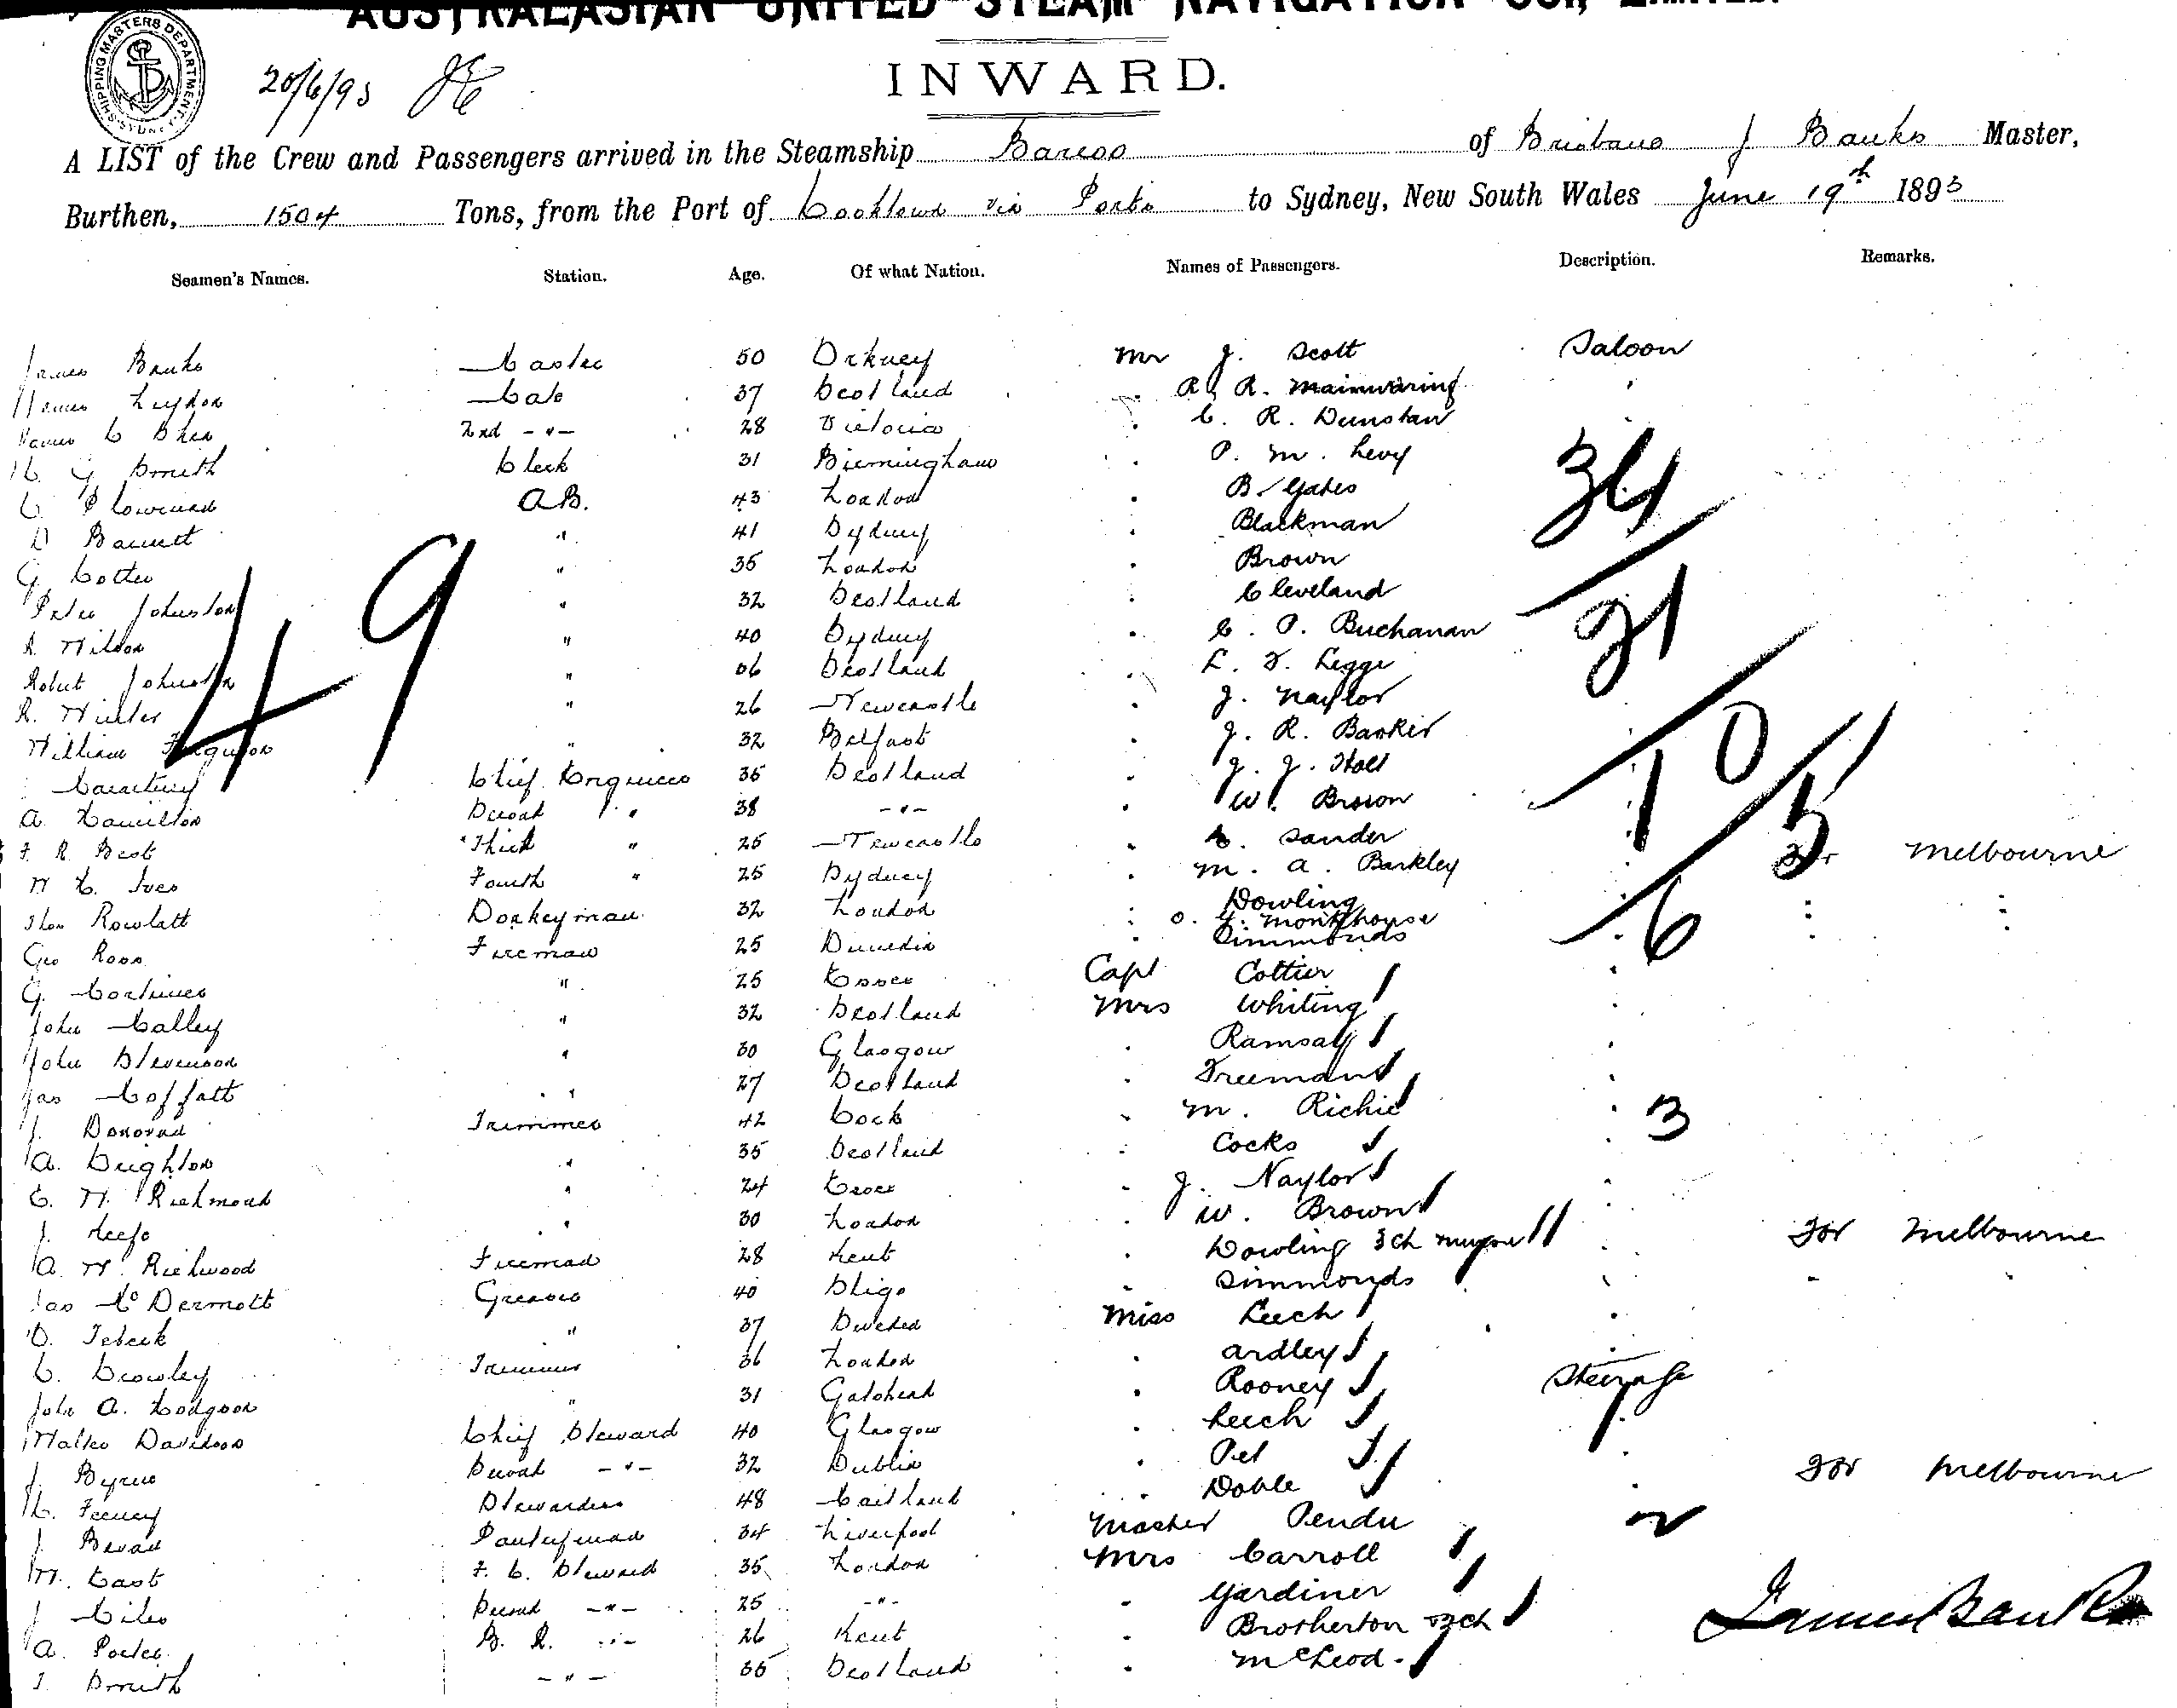 AUSTRALASIAN UNITED STEAM NAVIGATION COY., LIMITED.
SHIPPING MASTERS DEPARTMENT SYDNEY
20/6/93
INWARD.
A LIST of the Crew and Passengers arrived in the Steamship Barcoo of Brisbane J Banks Master,
Burthen, 1504 Tons, from the Port of Cooktown via Ports to Sydney, New South Wales June 19th 1893
Seamen's Names. Station. Age. Of what Nation. Names of Passengers. Description. Remarks.
James Banks Master 50 Orkney Mr J. Scott Saloon
James Leydon Mate 37 Scotland R. Mainwaring
2nd -"- 28 Victoria " C. R. Dunstan
H G Smith Clerk 31 Birmingham " P. M. Levy
C AB. 43 London " B. Yates
D Barrett " 41 Sydney " Blackman
G. Cotter " 35 London " Brown
Peter Johnston " 32 Scotland " Cleveland
A. Wilson " 40 Sydney " C. P. Buchanan
Robert Johnston " Scotland " L. F. Legge
R. Winter " 26 Newcastle " J. Naylor
William Ferguson " 32 Belfast " J. R. Barker
Chief Engineer 35 Scotland " J. J. Holt
A. Hamilton Second " 38 -"- " W. Brown
F. R. Best Third " 25 Newcastle " Sander
W C. Ives Fourth " 25 Sydney " M. A. Barkley For Melbourne
Thos Rowlatt Donkeyman 32 London " Dowling " "
" O. G. Monkhouse " "
Geo Ross Fireman 25 Dunedin " Simmonds
G. Mortimer " 25 Essex Capt Cottier
John Malley " 32 Scotland Mrs Whiting
John Stevenson " 30 Glasgow " Ramsay
Jas Moffatt " 27 Scotland " Freeman
J. Donovan Trimmer 42 Cork " M. Richie 3
A. Creighton " 35 Scotland " Cocks
C. W. Richmond " 24 Essex " J. Naylor
J. Keefe " 30 London " W. Brown
A. W. Richwood Fireman 28 Kent " Dowling 3 ch For Melbourne
Jas McDermott Greaser 40 Sligo " Simmonds "
O. " 37 Sweden Miss Leech
C. Crowley Trimmer 36 London " Ardley
John A. Hodgson " 31 Gateshead " Rooney Steerage
Walter Davidson Chief Steward 40 Glasgow " Leech
J. Byrne Second -"- 32 Dublin " Pet For Melbourne
M. Feeney Stewardess 48 Maitland " Doble
J Bevan Pantryman 34 Liverpool Master Pendu 2
W. East F. C. Steward 35 London Mrs Carroll
J Miles Second -"- 25 -"- " Gardiner
A. Porter B. R. -"- 26 Kent " Brotherton ch
J. Smith -"- 35 Scotland " McLeod
49
34
21
10
15
6
James Banks